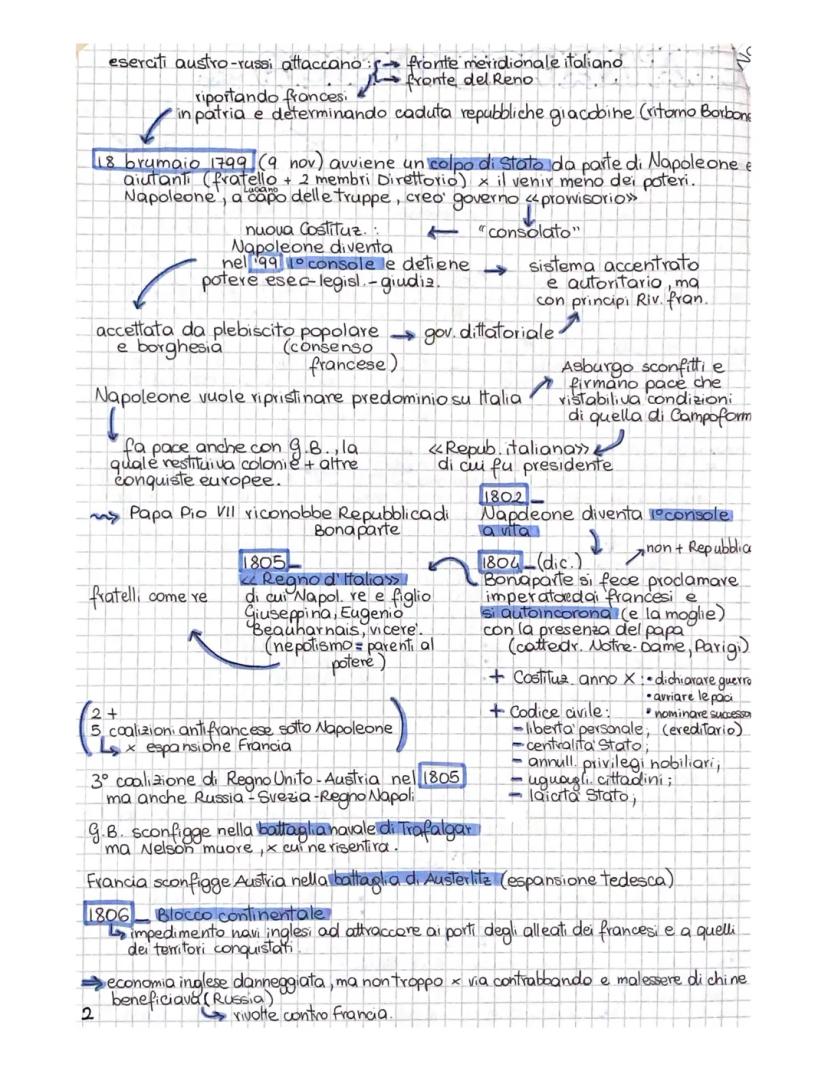 eserciti austro-russi attaccano: → fronte meridionale italiano
→ fronte del Reno
riportando francesi
in patria e determinando caduta repubbliche giacobine (ritorno Borbone
18 brumaio 1799 (9 nov) avviene un colpo di Stato da parte di Napoleone e
aiutanti (fratello + 2 membri Direttorio) x il venir meno dei poteri.
Luciano
Napoleone, a capo delle truppe, creo' governo «provvisorio»
nuova Costituz. : ← "consolato"
Napoleone diventa
nel '99 1° console e detiene → sistema accentrato
potere esec-legisl.-giudiz. e autoritario, ma
con principi Riv. fran.
accettata da plebiscito popolare → gov. dittatoriale
e borghesia (consenso
francese)
Asburgo sconfitti e
firmano pace che
Napoleone vuole ripristinare predominio su Italia ristabiliva condizioni
di quella di Campoform
fa pace anche con G.B., la «Repub. italiana»
quale restituiva colonie + altre di cui fu presidente
conquiste europee.
1802
Papa Pio VII riconobbe Repubblica di Napoleone diventa 1° console
Bonaparte a vita
non + Repubblica
1805 1804 (dic.)
«Regno d'Italia» Bonaparte si fece proclamare
fratelli come re di cui Napol. re e figlio imperatore dai francesi e
Giuseppina, Eugenio si autoincorona (e la moglie)
Beauharnais, vicere'. con la presenza del papa
(nepotismo = parenti al (cattedr. Notre-Dame, Parigi)
potere)
+ Costituz. anno X : • dichiarare guerra
• avviare le paci
2 + + Codice civile: • nominare successo
5 coalizioni antifrancese sotto Napoleone - liberta' personale, (ereditario)
↳ x espansione Francia - centralita' Stato;
- annull. privilegi nobiliari;
3° coalizione di Regno Unito - Austria nel 1805 - uguagli. cittadini;
ma anche Russia - Svezia - Regno Napoli - laicita' Stato;
G.B. sconfigge nella battaglia navale di Trafalgar
ma Nelson muore, x cui ne risentira'.
Francia sconfigge Austria nella battaglia di Austerlitz (espansione tedesca)
1806 Blocco continentale
↳ impedimento navi inglesi ad attraccare ai porti degli alleati dei francesi e a quelli
dei territori conquistati.
⇒ economia inglese danneggiata, ma non troppo x via contrabbando e malessere di chi ne
beneficiava (Russia)
2 ↳ rivolte contro Francia.